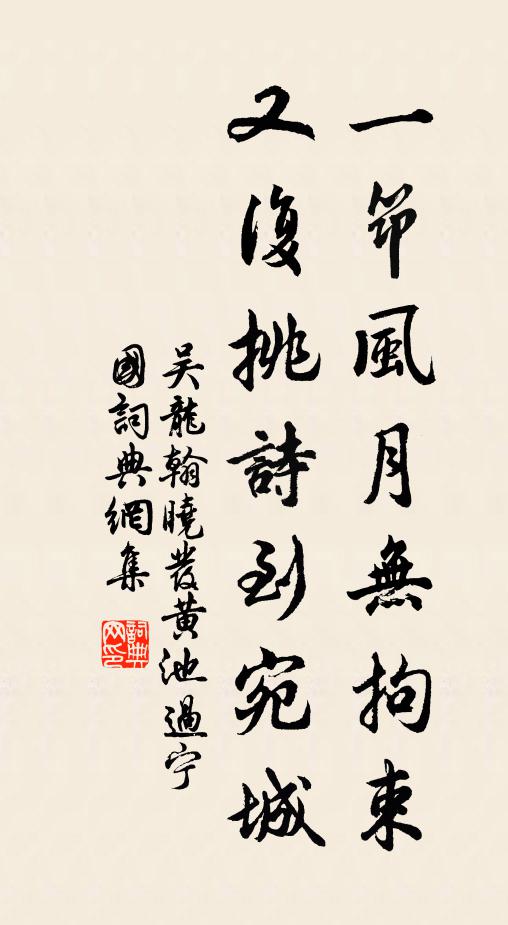 一笻風月無拘束
又復挑詩到宛城
吴龍翰曉發黄池過宁
國詞典網集
詞典网印